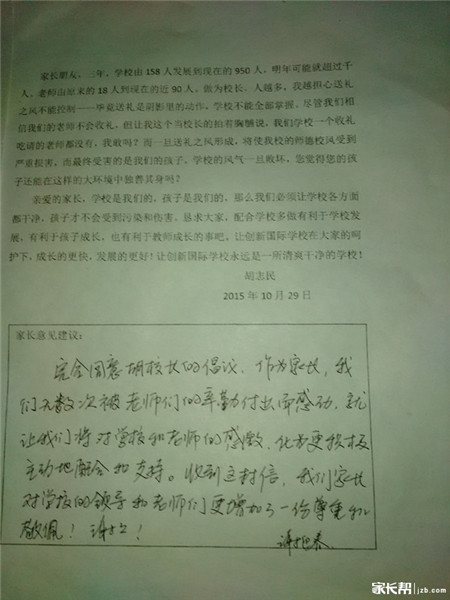 家长朋友，三年，学校由 158 人发展到现在的 950 人，明年可能就超过千
人，老师由原来的 18 人到现在的近 90 人，做为校长，人越多，我越担心送礼
之风不能控制——毕竟送礼是阴影里的动作，学校不能全部掌握。尽管我们相
信我们的老师不会收礼，但让我这个当校长的拍着胸脯说，我们学校一个收礼
吃请的老师都没有，我敢吗？而一旦送礼之风形成，将使我校的师德校风受到
严重损害，而最终受害的是我们的孩子。学校的风气一旦败坏，您觉得您的孩
子还能在这样的大环境中独善其身吗？
亲爱的家长，学校是我们的，孩子是我们的，那么我们必须让学校各方面
都干净，孩子才不会受到污染和伤害。恳求大家，配合学校多做有利于学校发
展，有利于孩子成长，也有利于教师成长的事吧。让创新国际学校在大家的呵
护下，成长的更快，发展的更好！让创新国际学校永远是一所清爽干净的学校！
胡志民
2015 年 10 月 29 日
家长意见建议：
完全同意胡校长的倡议，作为家长，我
们无数次被老师们的辛勤付出而感动，就
让我们将对学校和老师的感激，化为更积极
主动地配合和支持。收到这封信，我们家长
对学校的领导和老师们更增加了一份尊重和
敬佩！谢谢！
家长帮 jzb.com